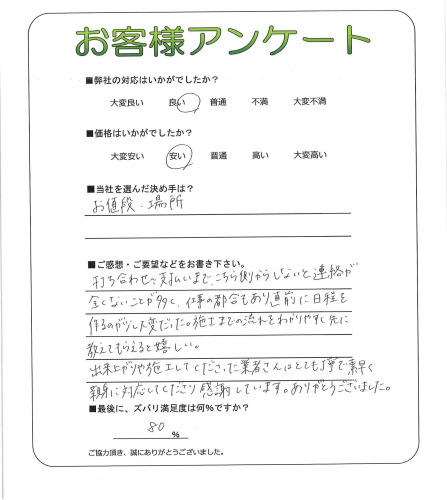 お客様アンケート
■弊社の対応はいかがでしたか？
大変良い 良い 普通 不満 大変不満
■価格はいかがでしたか？
大変安い 安い 普通 高い 大変高い
■当社を選んだ決め手は？
お値段・場所
■ご感想・ご要望などをお書き下さい。
打ち合わせ、支払いまで、こちら側からしないと連絡が
全くないことが多く、仕事の都合もあり直前に日程を
作るのが少し大変だった。施工までの流れをわかりやすく先に
教えてもらえると嬉しい。
出来上がりや施工してくださった業者さんはとても丁寧で素早く
親身に対応してくださり感謝しています。ありがとうございました。
■最後に、ズバリ満足度は何％ですか？
80 %
ご協力頂き、誠にありがとうございました。